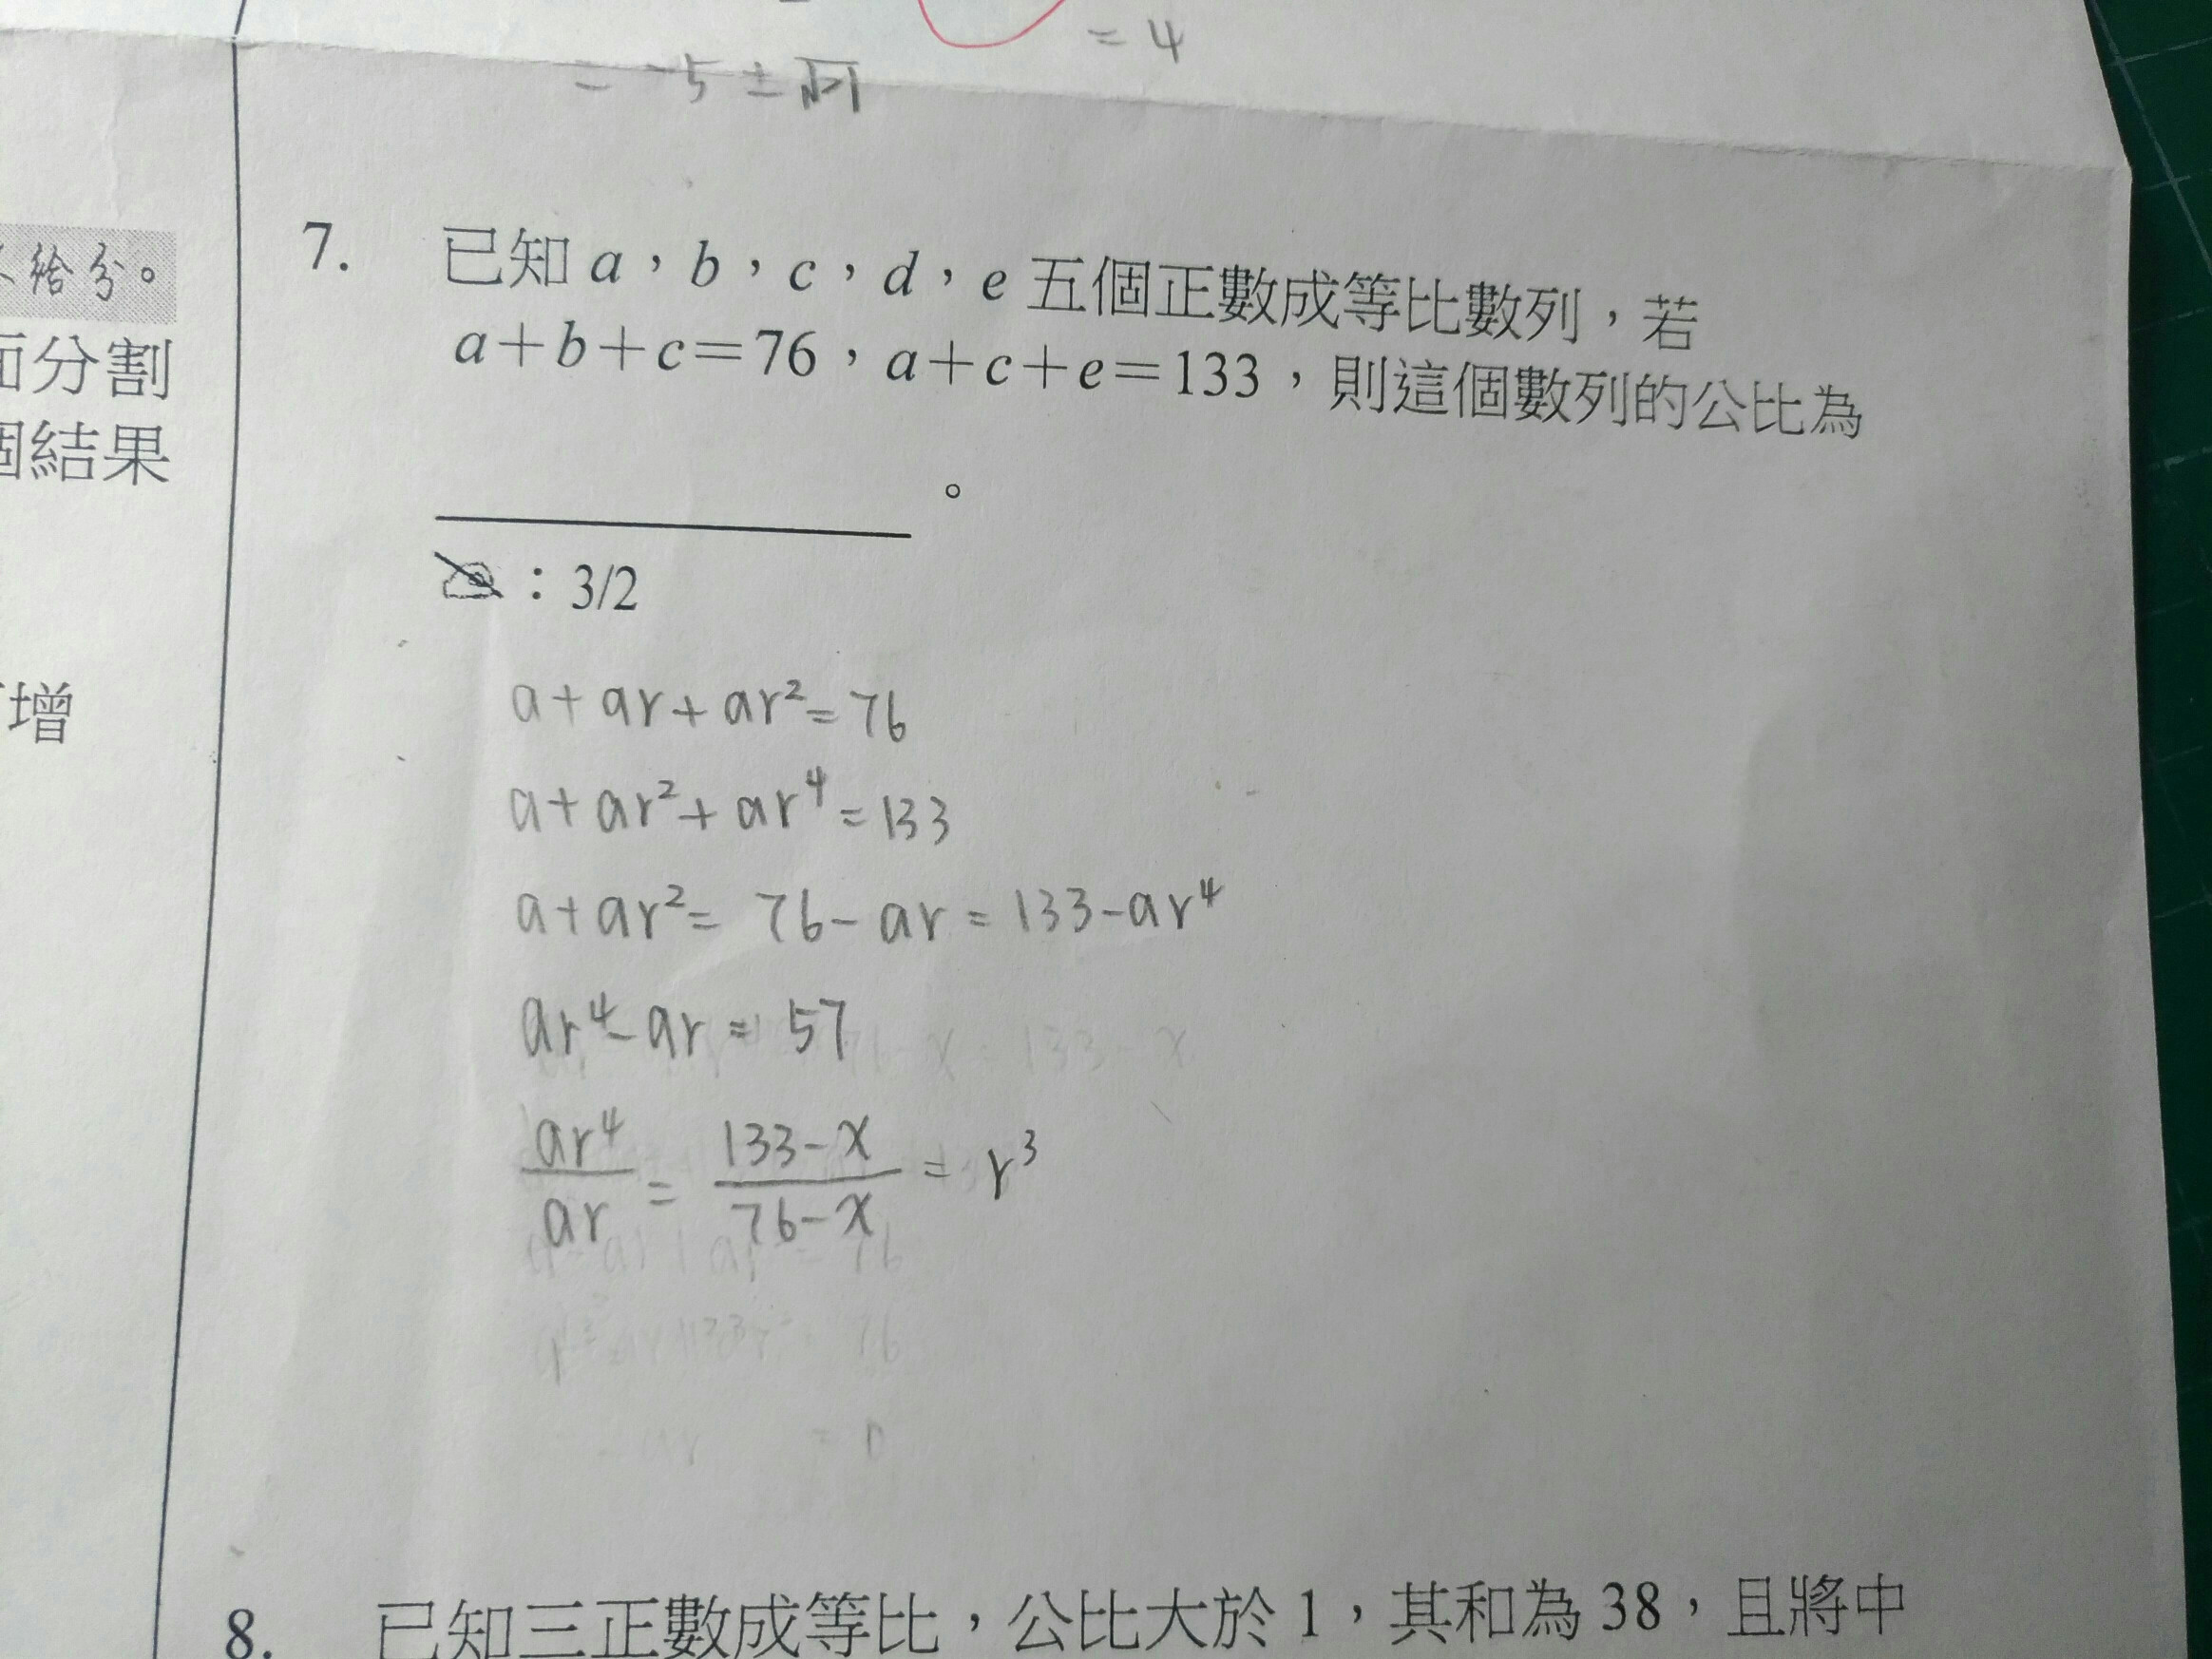 = 4
= -5 ±
給分。
面分割
個結果
增
7. 已知 a，b，c，d，e 五個正數成等比數列，若
a＋b＋c＝76，a＋c＋e＝133，則這個數列的公比為
。
：3/2
a + ar + ar² = 76
a + ar² + ar⁴ = 133
a + ar² = 76 - ar = 133 - ar⁴
ar⁴ - ar = 57
ar⁴/ar = (133-x)/(76-x) = r³
8. 已知三正數成等比，公比大於 1，其和為 38，且將中